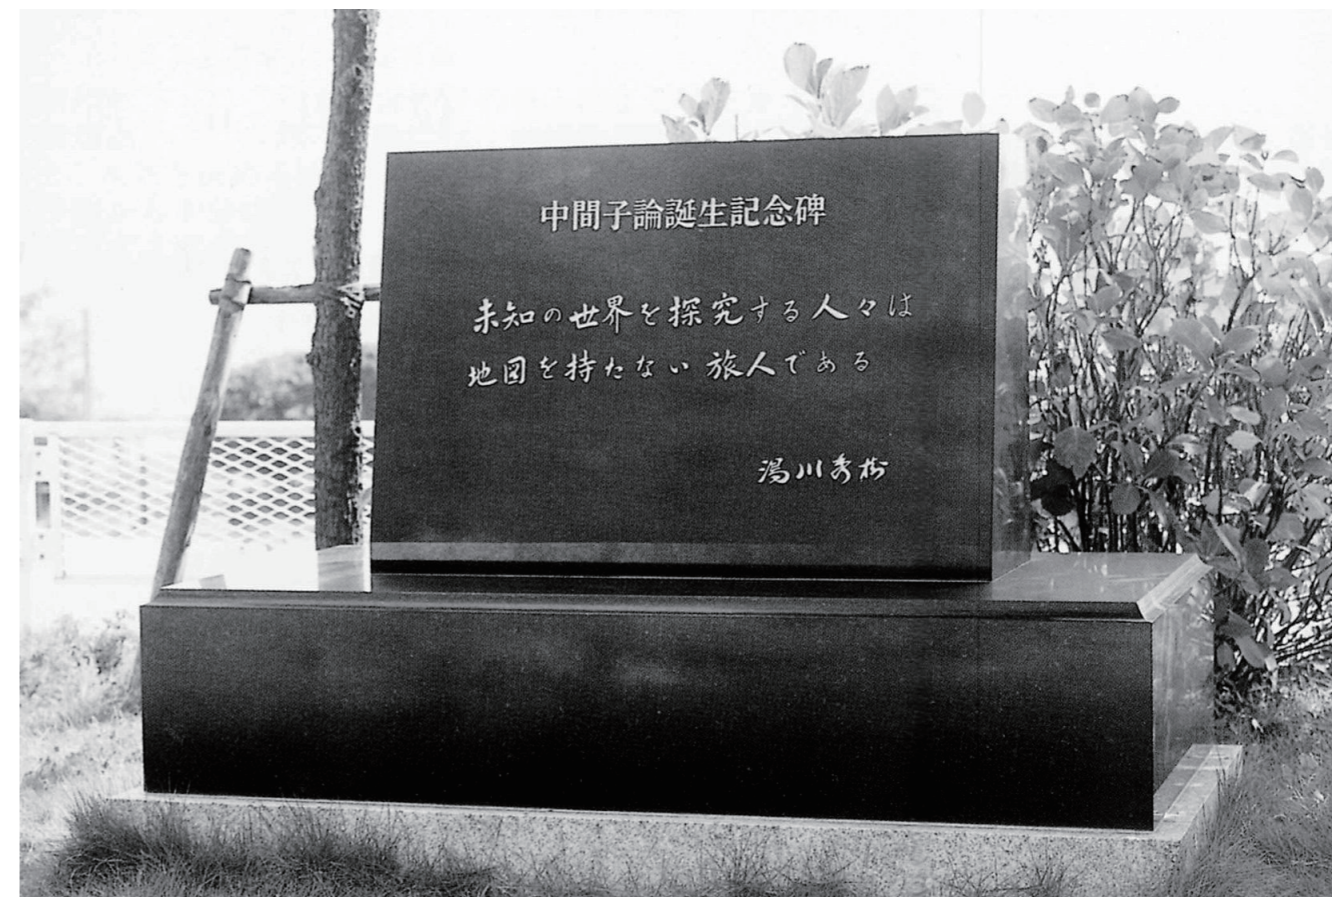 中間子論誕生記念碑
未知の世界を探究する人々は
地図を持たない旅人である
湯川秀樹